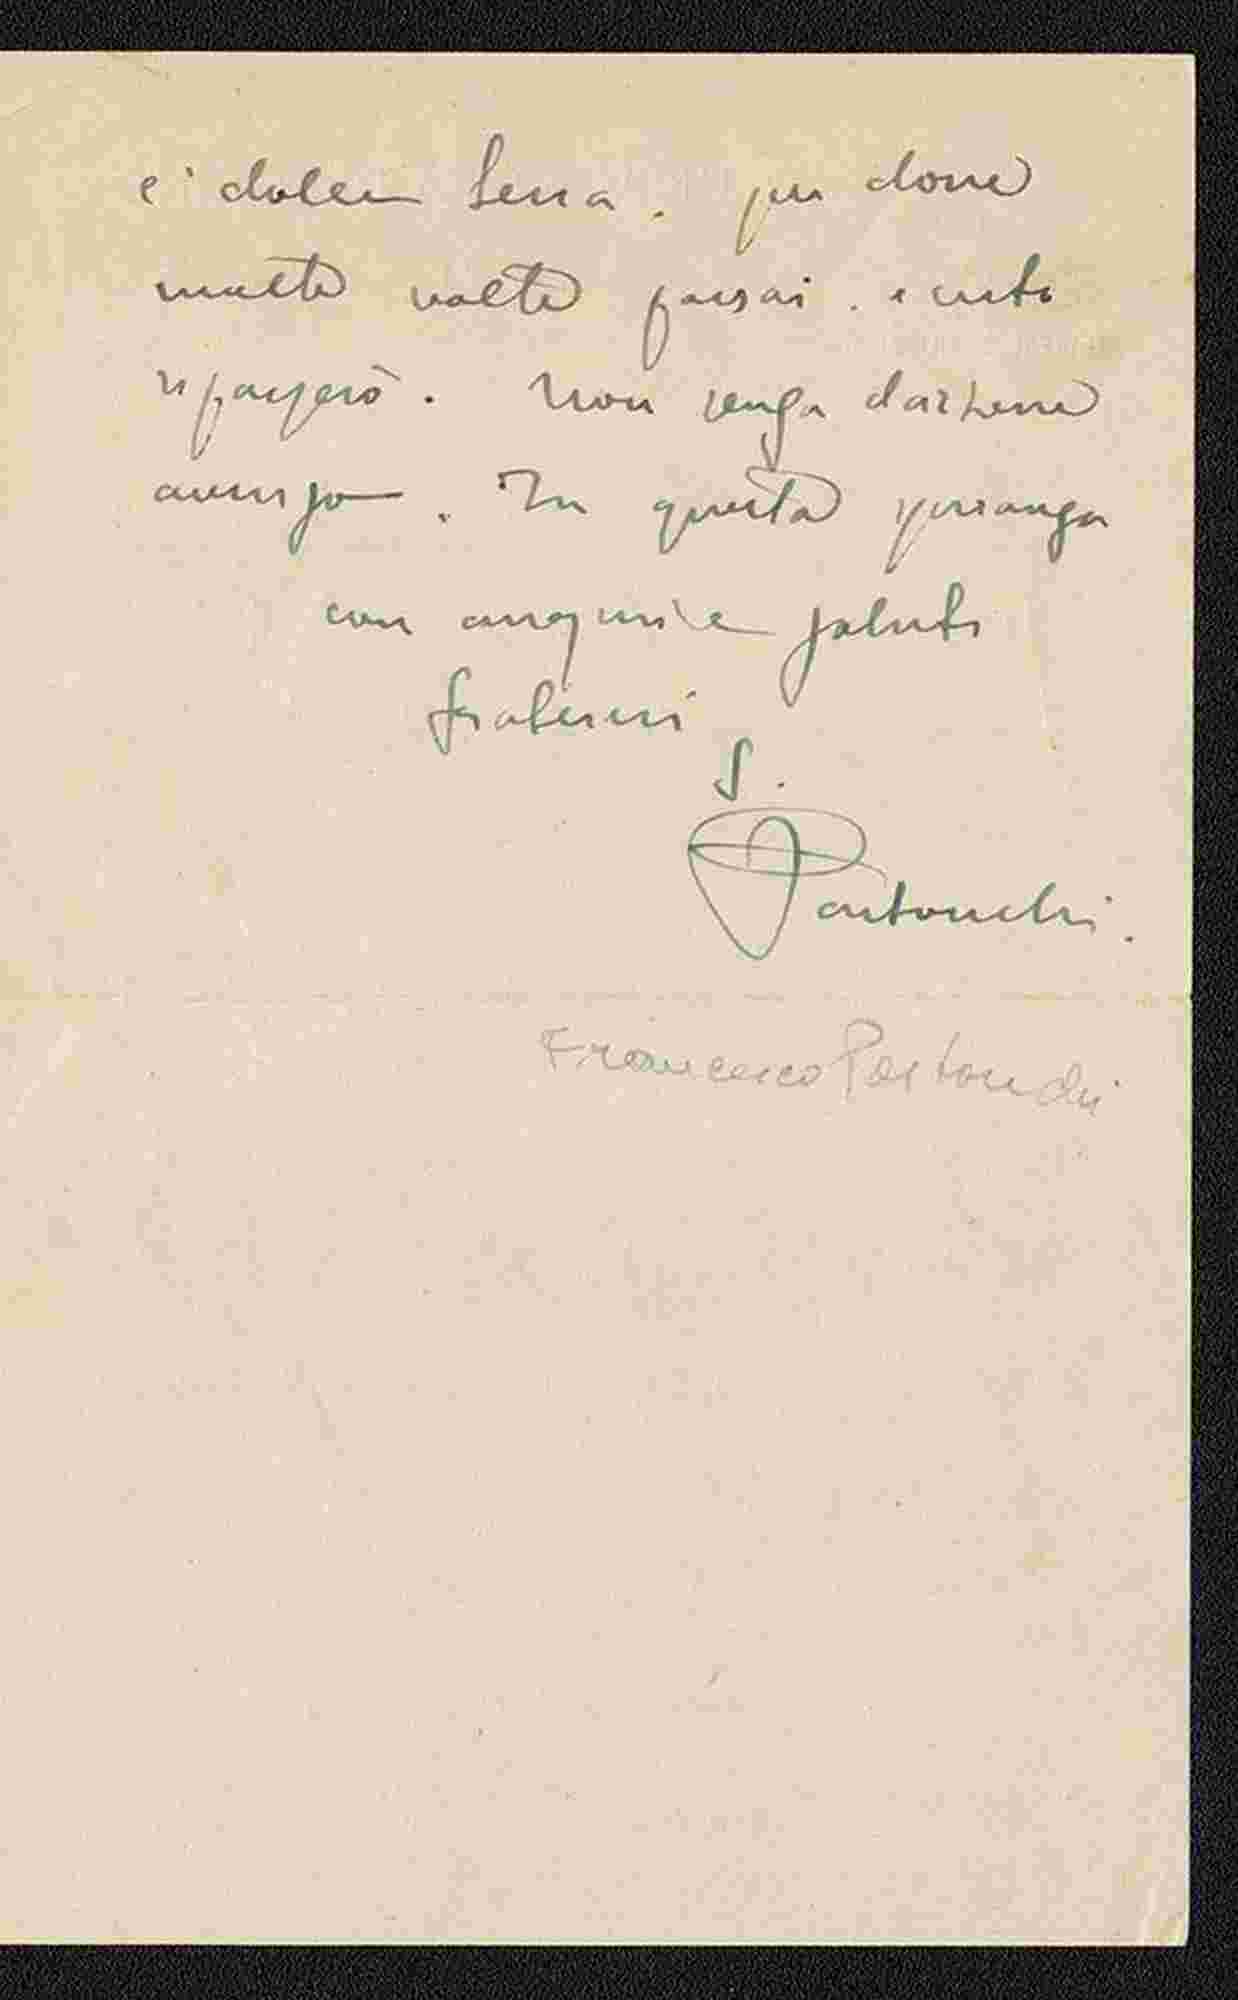 e' dolce terra. per dove
molte volte passai. e certo
ripasserò. Non senza dartene
avviso. In questa speranza
con auguri e saluti
fraterni
F. Pastonchi.
Francesco Pastonchi